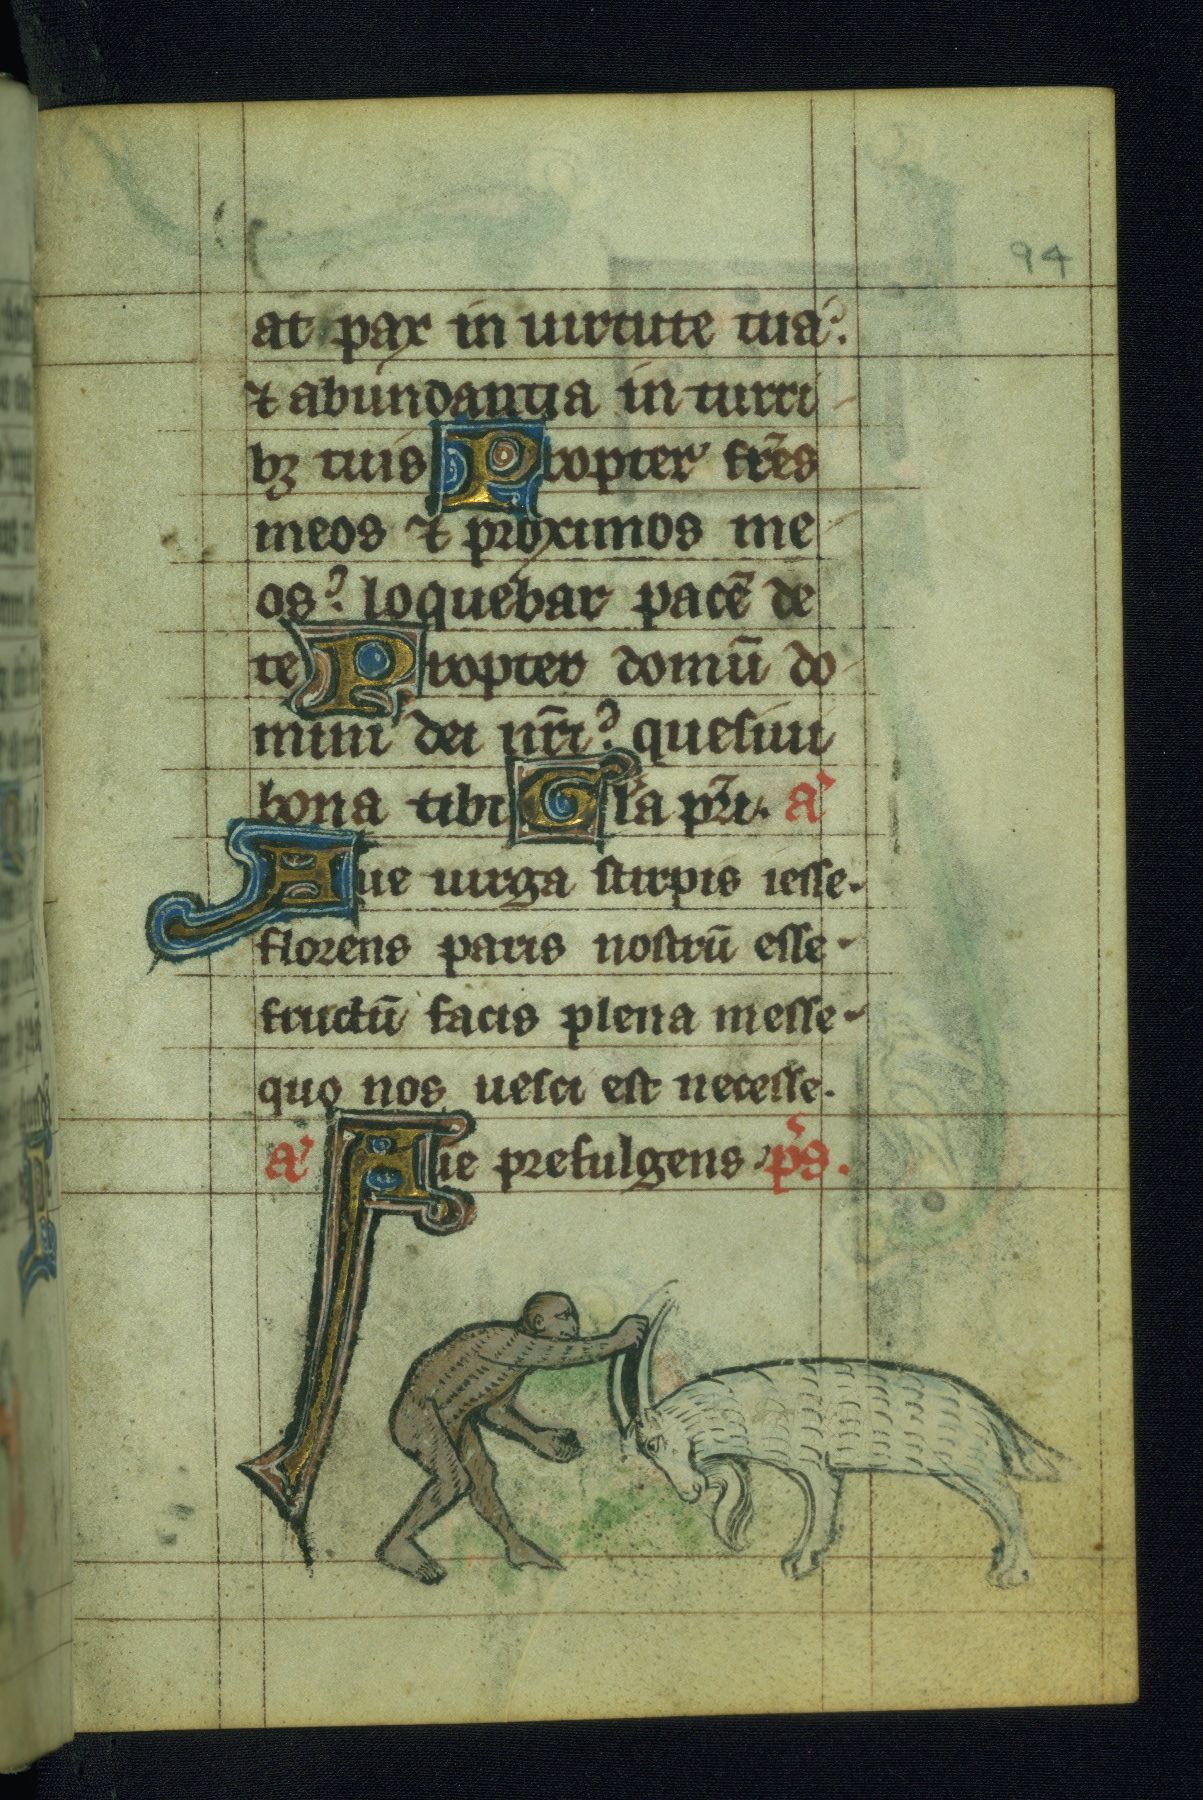 94
at pax in uirtute tua.
⁊ abundantia in turri
bꝫ tuis Propter fr̃es
meos ⁊ proximos me
os? loquebar pacē de
te Propter domū do
mini dei nr̃i? quesiui
bona tibi Gl'a pr̃i. a'
Aue uirga stirpis iesse.
florens paris nostrū esse.
fructū facis plena messe.
quo nos uesci est necesse.
a' Aue prefulgens. p̃s.